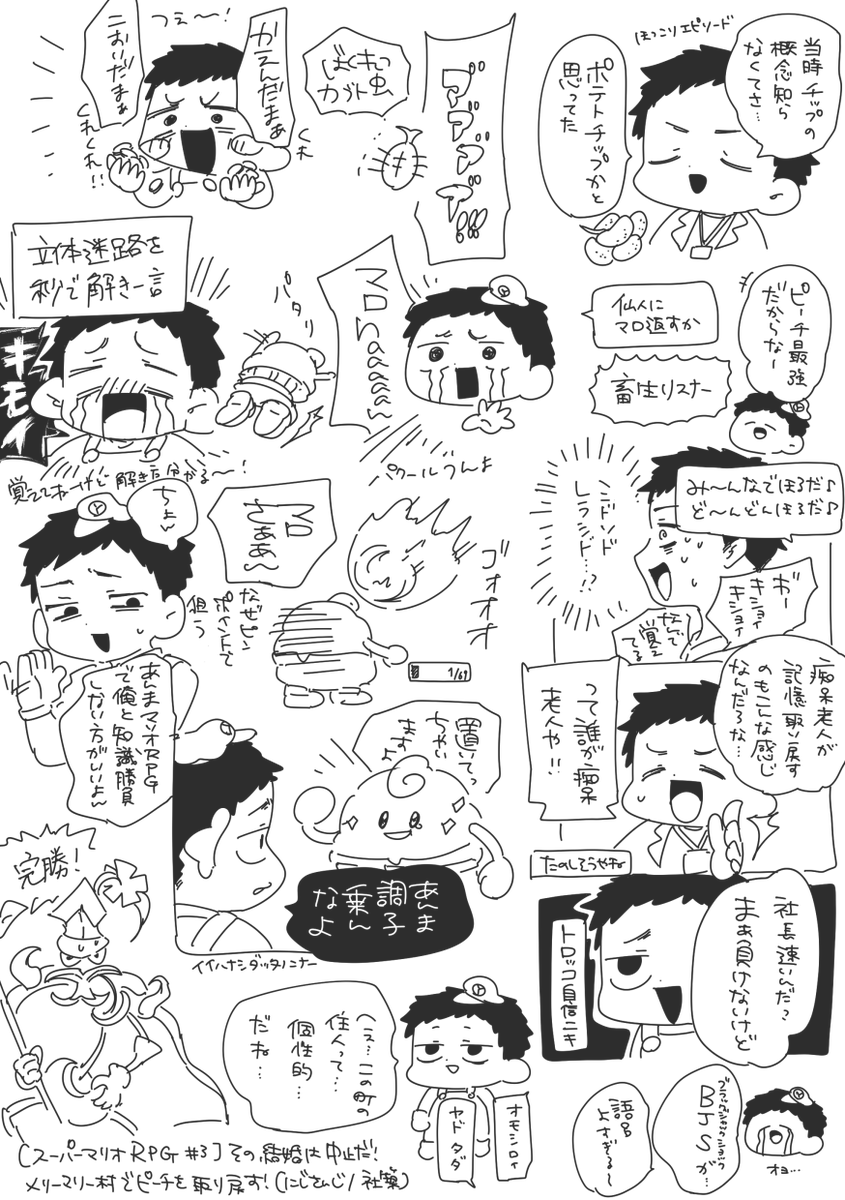 ほっこりエピソード
当時チップの
概念知ら
なくてさ…
ポテトチップかと
思ってた
ママママ!!
ぼくキュン
カブト虫
つえ〜!
かえんだまぁ
ニおいだまぁ
くれ
くれくれ!!
ピーチ最強
だからな〜
仙人に
マロ返すか
畜生リスナー
マロnaaaa〜
パタリ
パクールうんよ
立体迷路を
秒で解き一言
キモイ
覚えてねーけど解き方分かる〜!
み〜んなでほるだ♪
ど〜んどんほるだ♪
ンドンド
レラシド…!?
ガー
キショイ
キショイ
なんで
覚え
てる
マロ
さぁぁ〜
ゴォオオ
ちょい
なぜピン
ポイントで
狙う
1/69
あんまマリオRPG
で俺と知識勝負
しない方がいいよ〜
痴呆老人が
記憶取り戻す
のもこんな感じ
なんだろな…
って誰が痴呆
老人や!!
たのしそうやね
置いてっ
ちゃい
ますよ
あんま
調子
乗ん
なよ
イイハナシダッタノニナー
完勝!
社長速いんだ?
まぁ負けないけど
トロッコ自信ニキ
へぇ…この町の
住人って…
個性的…
だね…
オモシロイ
ヤドダダ
BJSが…
語呂
よすぎる〜
オヨ…
[スーパーマリオRPG #3]その結婚は中止だ!
メリーマリー村でピーチを取り戻す!(にじさんじ/社築)